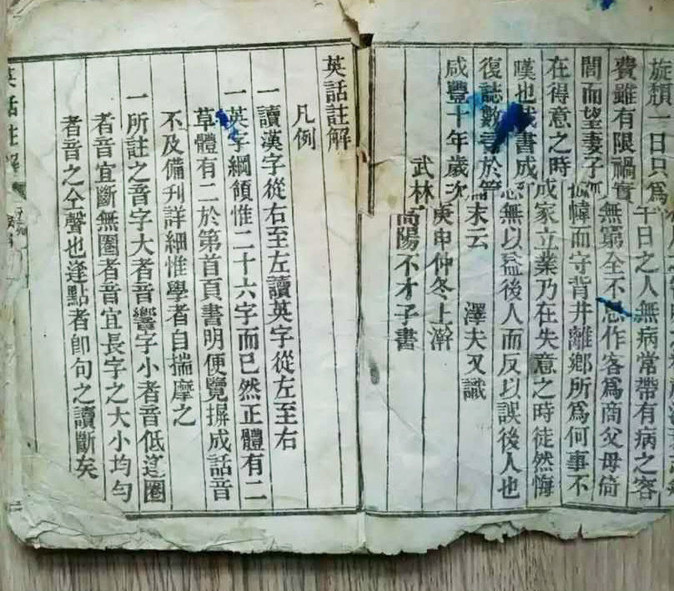 旋頹一日只為千日之人無病常帶有病之客
費雖有限禍實無窮全不思作客為商父母倚
閭而望妻子幃而守背井離鄉所為何事不
在得意之時成家立業乃在失意之時徒然悔
嘆也書成恐無以益後人而反以誤後人也
復誌數言於篇末云 澤夫又識
咸豐十年歲次庚申仲冬上澣
武林高陽不才子書
英話註解
凡例
一讀漢字從右至左讀英字從左至右
一英字綱領惟二十六字而已然正體有二
草體有二於第首頁書明便覽攤成話音
不及備刋詳細惟學者自揣摩之
一所註之音字大者音響字小者音低逢圈
者音宜斷無圈者音宜長字之大小均勻
者音之仝聲也逢點者卽句之讀斷矣
英話註解